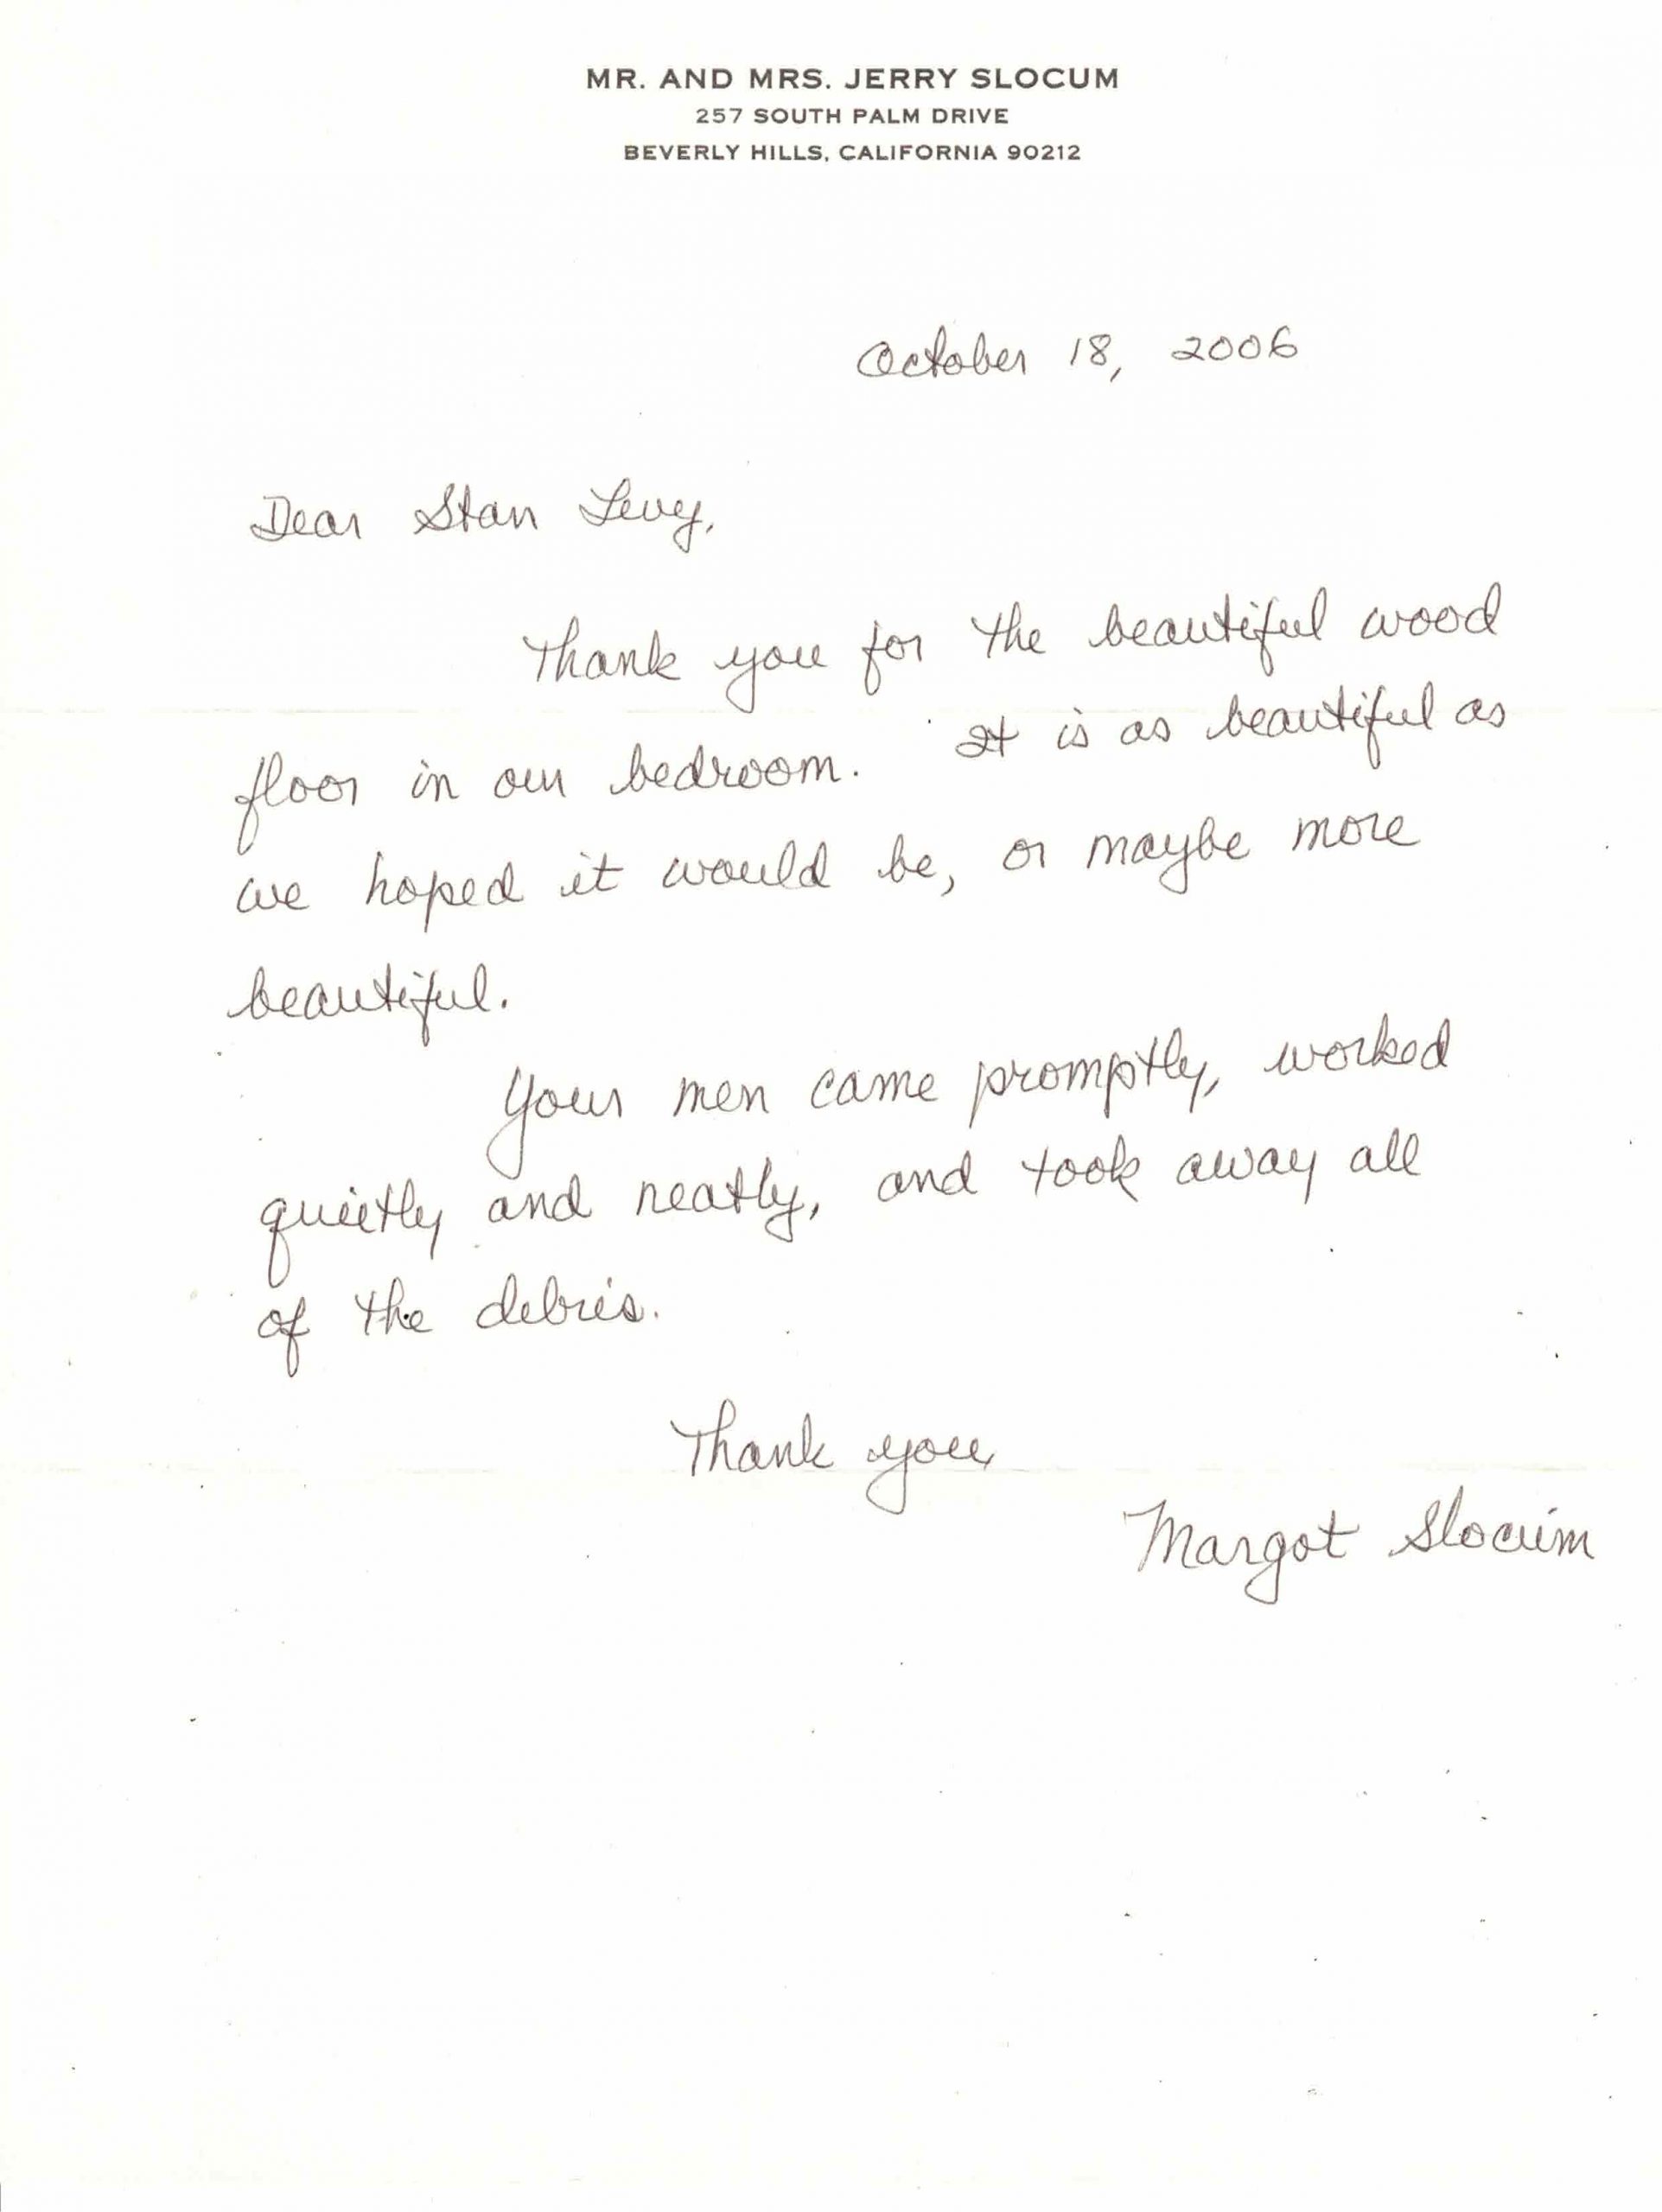 MR. AND MRS. JERRY SLOCUM
257 SOUTH PALM DRIVE
BEVERLY HILLS, CALIFORNIA 90212
October 18, 2006
Dear Stan Levy,
Thank you for the beautiful wood
floor in our bedroom. It is as beautiful as
we hoped it would be, or maybe more
beautiful.
Your men came promptly, worked
quietly and neatly, and took away all
of the debris.
Thank you,
Margot Slocum